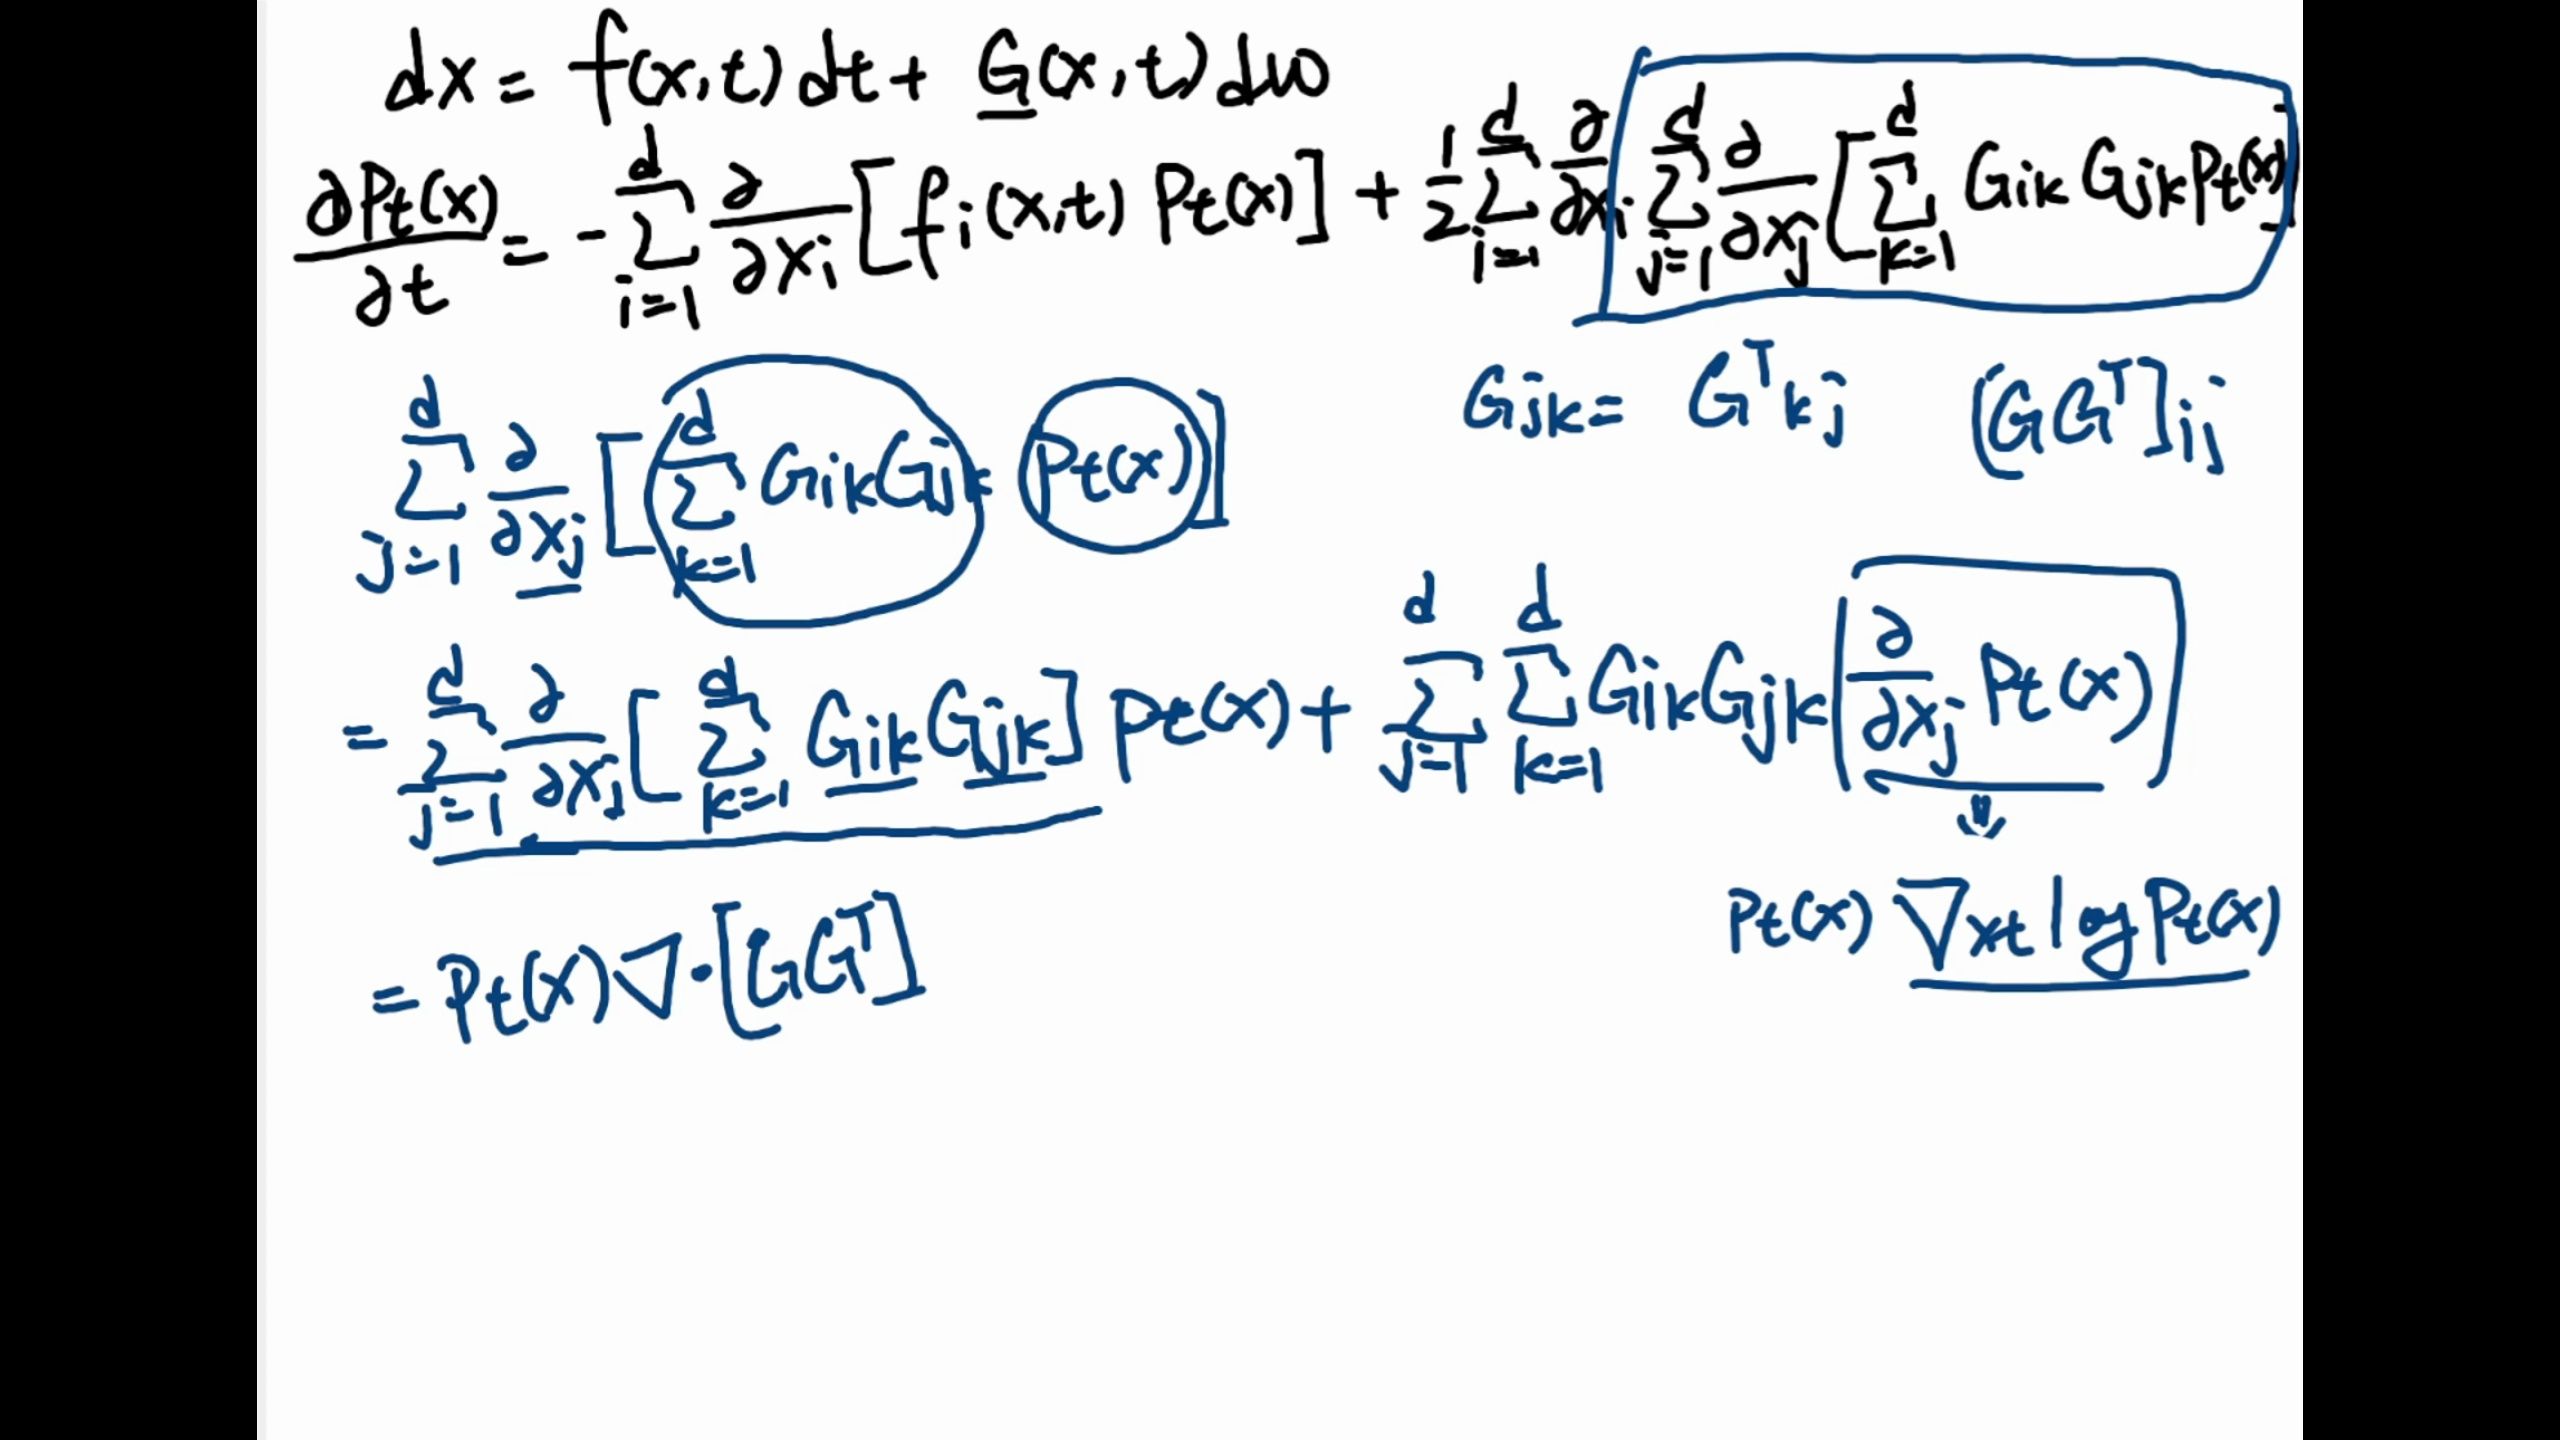 dx = f(x,t)dt + G(x,t)dw
∂Pt(x)/∂t = - ∑_{i=1}^{d} ∂/∂xi [fi(x,t) Pt(x)] + 1/2 ∑_{i=1}^{d} ∂/∂xi ∑_{j=1}^{d} ∂/∂xj [∑_{k=1}^{d} Gik Gjk Pt(x)]
Gjk = G^T kj [GG^T]ij
∑_{j=1}^{d} ∂/∂xj [∑_{k=1}^{d} Gik Gjk Pt(x)]
= ∑_{j=1}^{d} ∂/∂xj [∑_{k=1}^{d} Gik Gjk] Pt(x) + ∑_{j=1}^{d} ∑_{k=1}^{d} Gik Gjk (∂/∂xj Pt(x))
⇓
Pt(x) ∇xt log Pt(x)
= Pt(x) ∇·[GG^T]